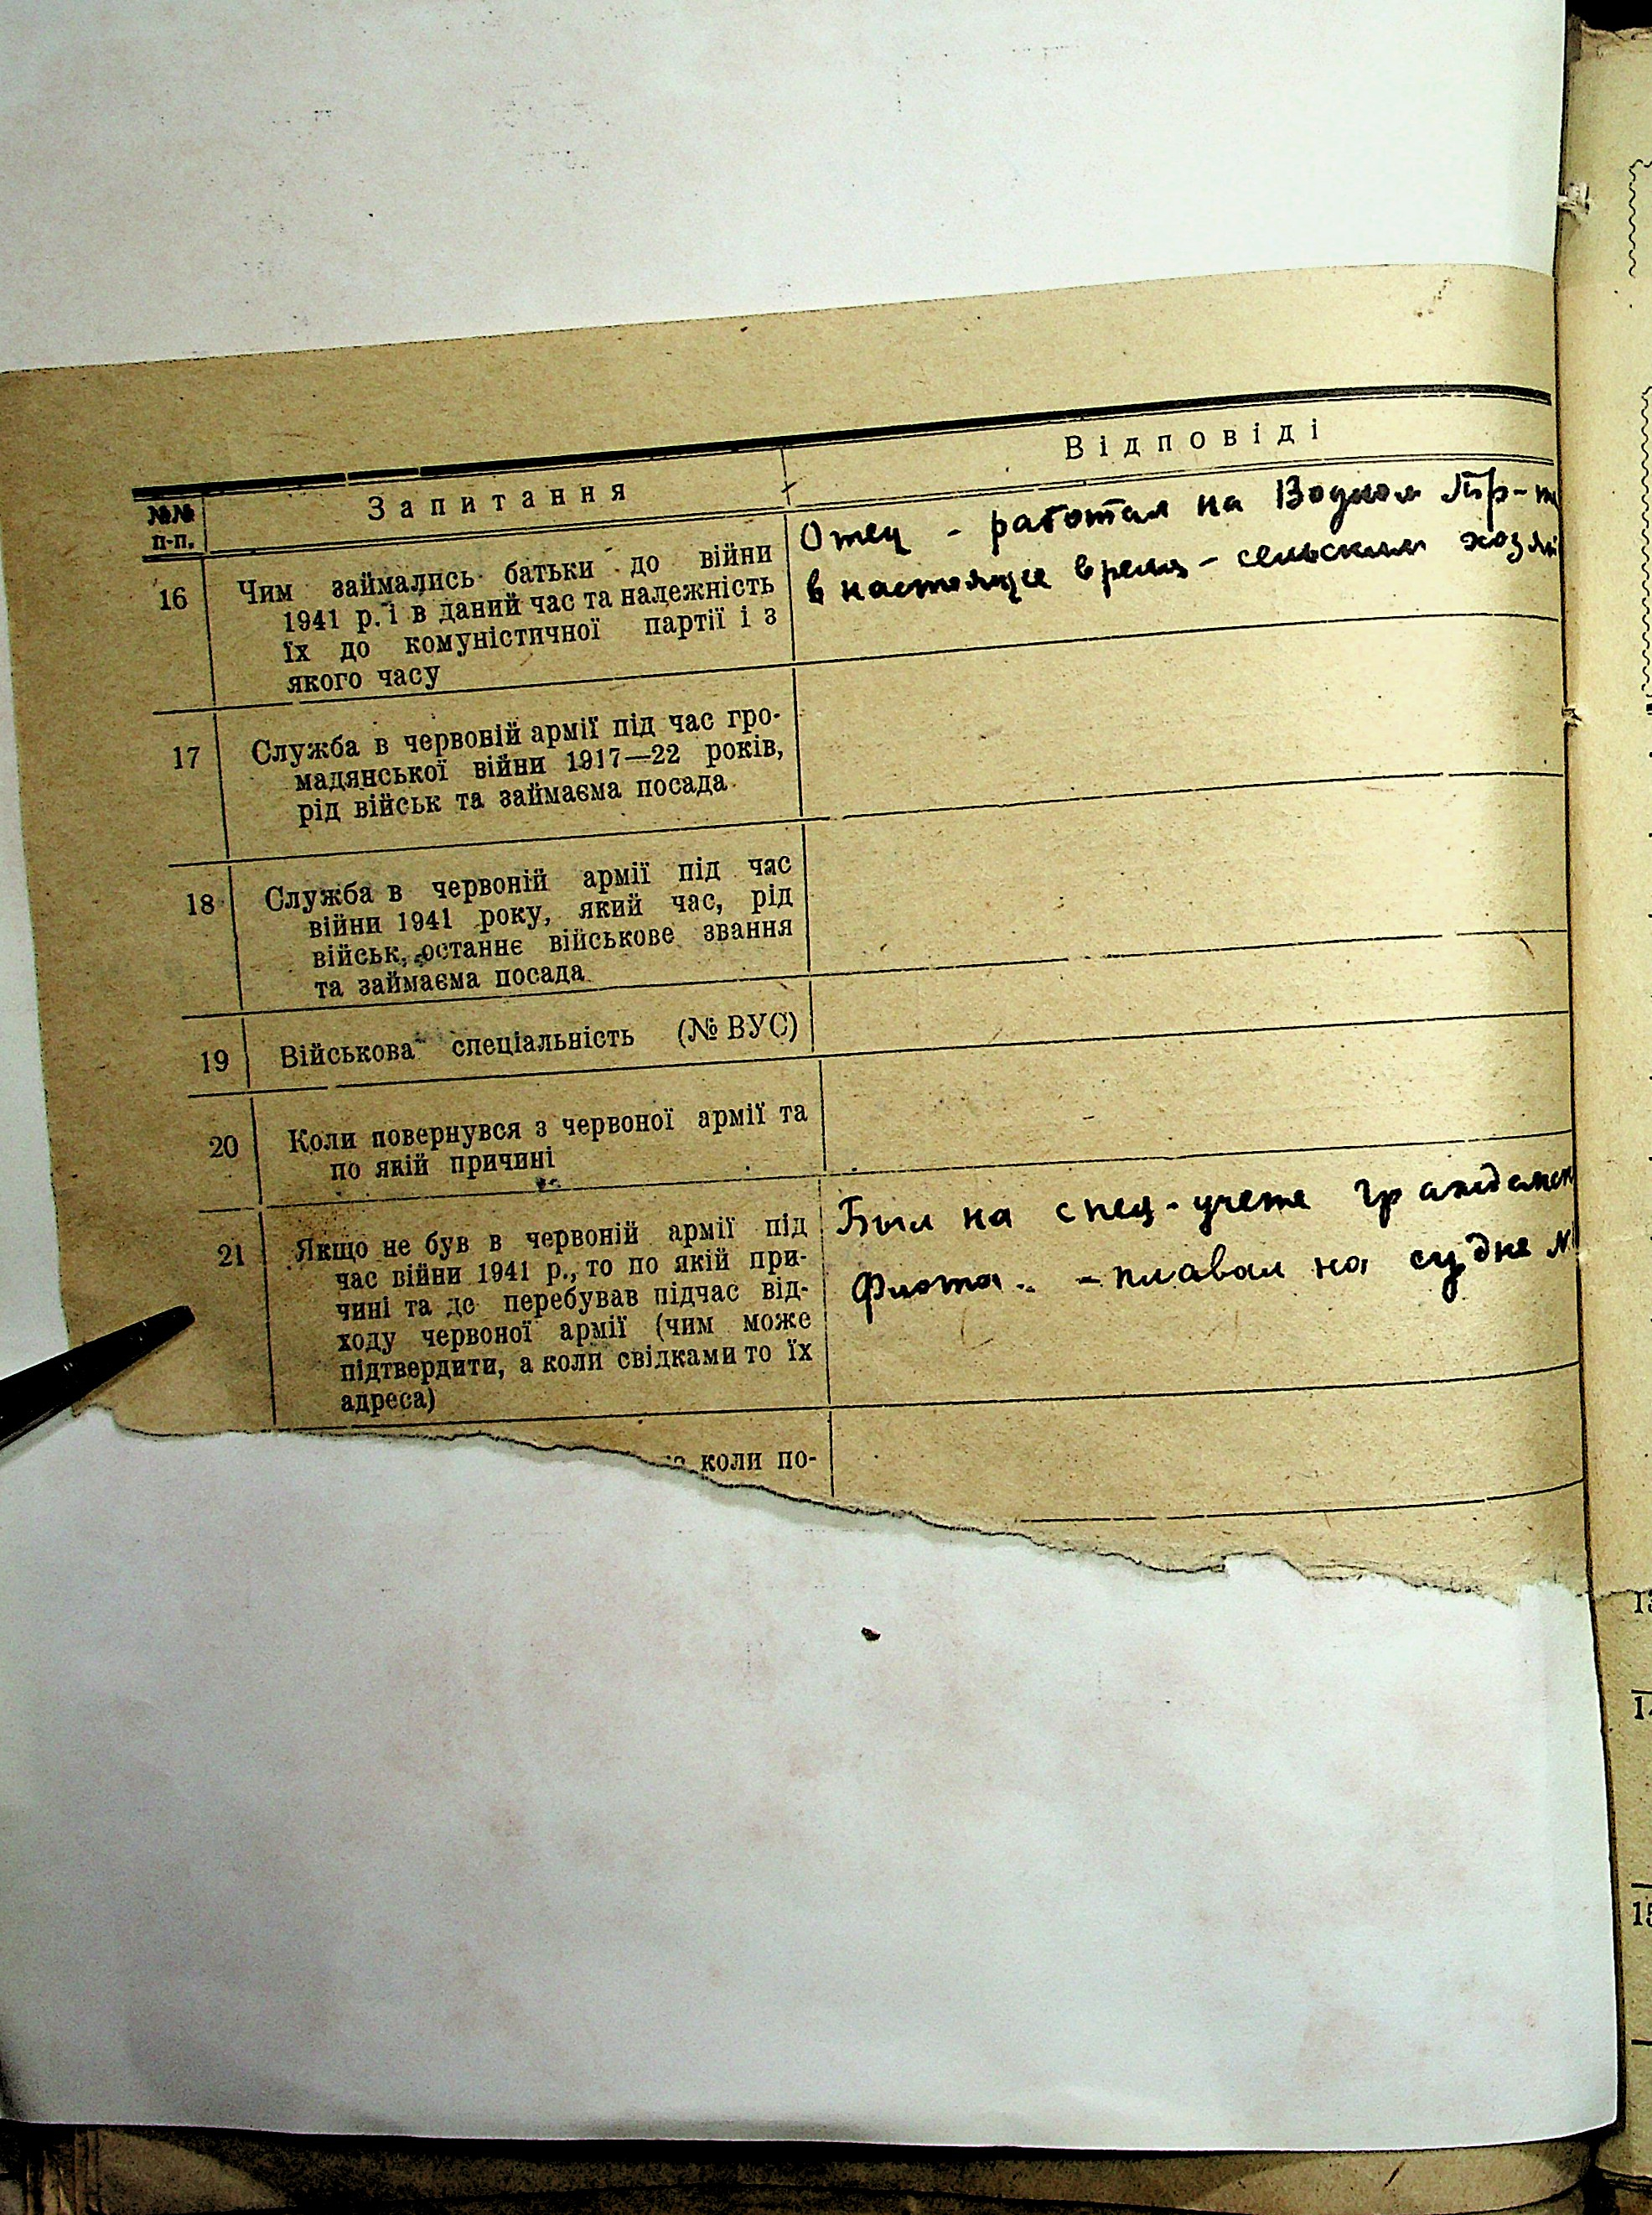 Відповіді
№№ п-п.
Запитання
16 Чим займались батьки до війни
1941 р. і в даний час та належність
їх до комуністичної партії і з
якого часу
Отец - работал на Водном Тр-т
в настоящее время - сельским хозяй
17 Служба в червоній армії під час гро-
мадянської війни 1917—22 років,
рід військ та займаєма посада
18 Служба в червоній армії під час
війни 1941 року, який час, рід
військ, останнє військове звання
та займаєма посада
19 Військова спеціальність (№ ВУС)
20 Коли повернувся з червоної армії та
по якій причині
21 Якщо не був в червоній армії під
час війни 1941 р., то по якій при-
чині та де перебував підчас від-
ходу червоної армії (чим може
підтвердити, а коли свідками то їх
адреса)
Был на спец-учете Гражданск
Флота. - плавал на судне
коли по-
13
14
15